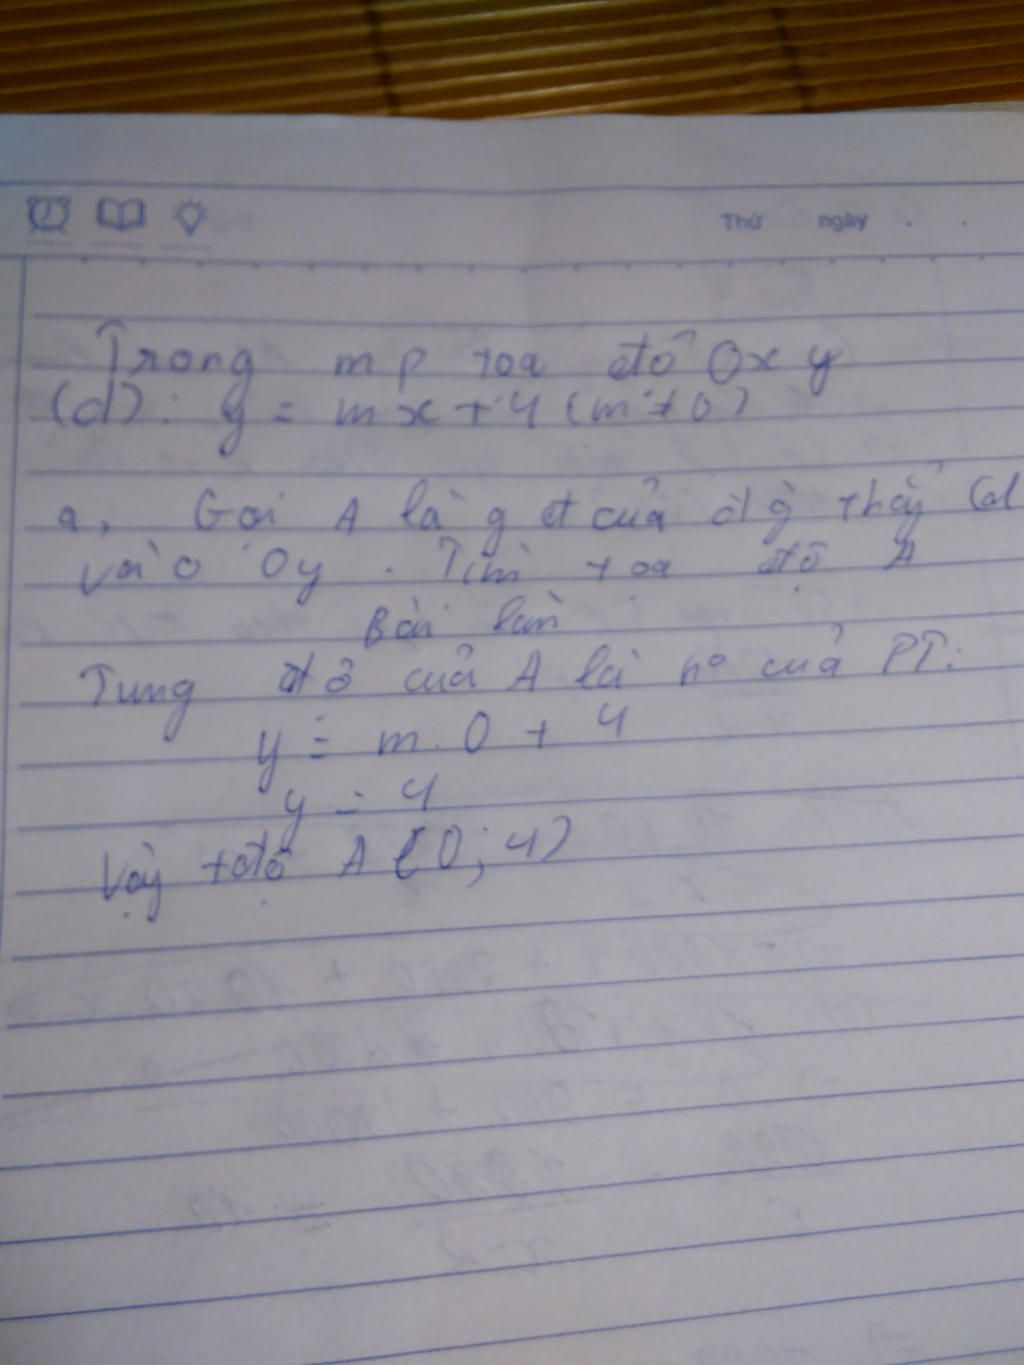 Thứ ngày . .
Trong mp toạ độ Oxy
(d): y = mx + 4 (m ≠ 0)
a, Gọi A là gđ của đg thẳg (d
và Oy . Tìm toạ độ A
Bài làm
Tung độ của A là no của PT:
y = m.0 + 4
y = 4
Vậy tđộ A (0; 4)